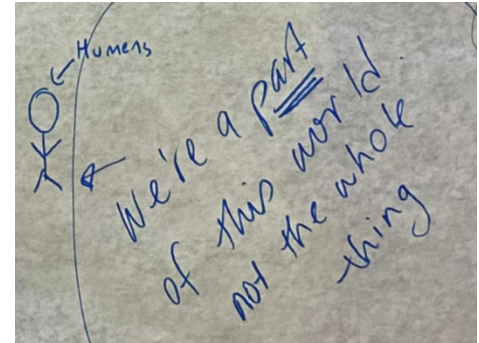 Humens
We're a part
of this world
not the whole
thing